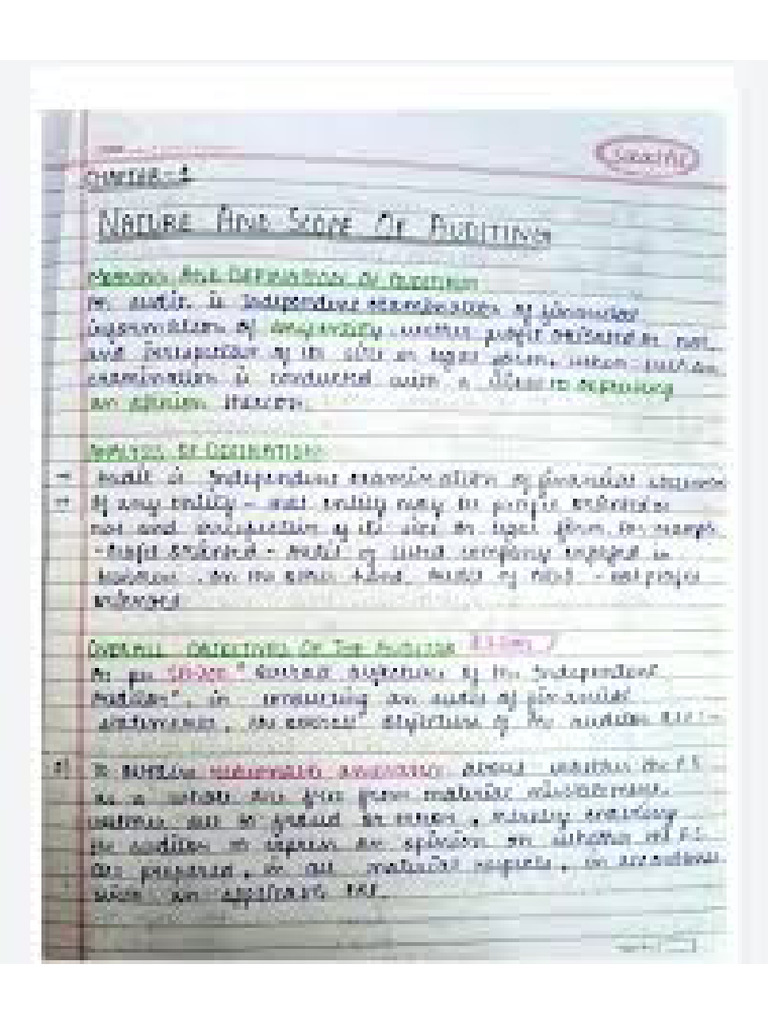 CHAPTER-1
NATURE AND SCOPE OF AUDITING
MEANING AND DEFINITION OF AUDITING
An audit is Independent examination of financial
information of any entity, whether profit oriented or not
and irrespective of its size or legal form, when such an
examination is conducted with a view to expressing
an opinion thereon.
ANALYSIS OF DEFINITION
Audit is Independent examination of financial
of any entity - that entity may be profit oriented or
not and irrespective of its size or legal form. For example
- Profit oriented - Audit of listed company engaged in
business. On the other hand, Audit of NGO - not profit
oriented
OVERALL OBJECTIVES OF THE AUDITOR
As per SA-200 "Overall objectives of the Independent
Auditor", in conducting an audit of financial
statements, the overall objectives of the auditor are :-
a) To obtain reasonable assurance about whether the F.S.
as a whole are free from material misstatement
whether due to fraud or error, thereby enabling
the auditor to express an opinion on whether the F.S.
are prepared, in all material respects, in accordance
with an applicable FRF.